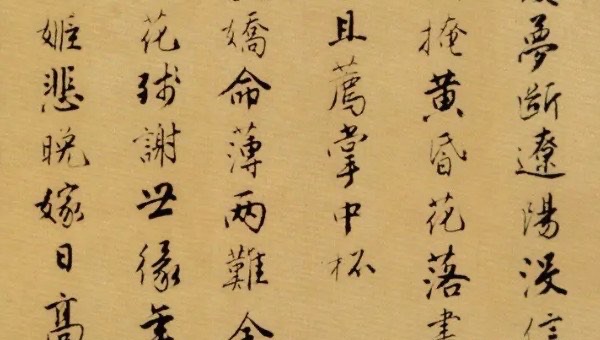 夢斷遼陽没信
掩黃昏花落
且薦掌中杯
嬌命薄兩難全
花殘謝世緣
姬悲晚嫁日高